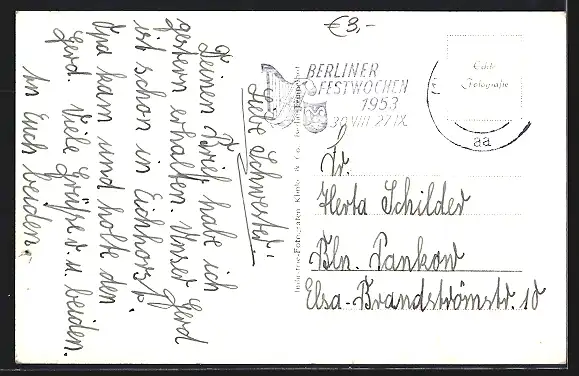 €3,-
BERLINER
FESTWOCHEN
1953
30.VIII-27.IX.
Echte
Fotografie
aa
Liebe Schwester!
Deinen Brief habe ich
gestern erhalten. Unser Gerd
ist schon in Eichhorst.
Opa kam und holte den
Gerd. Viele Grüße v. u. beiden.
An Euch beiden.
Industrie-Fotografen Klinke & Co. Berlin-Tempelhof
Fr.
Herta Schilder
Bln. Pankow
Elsa-Brandströmstr. 10